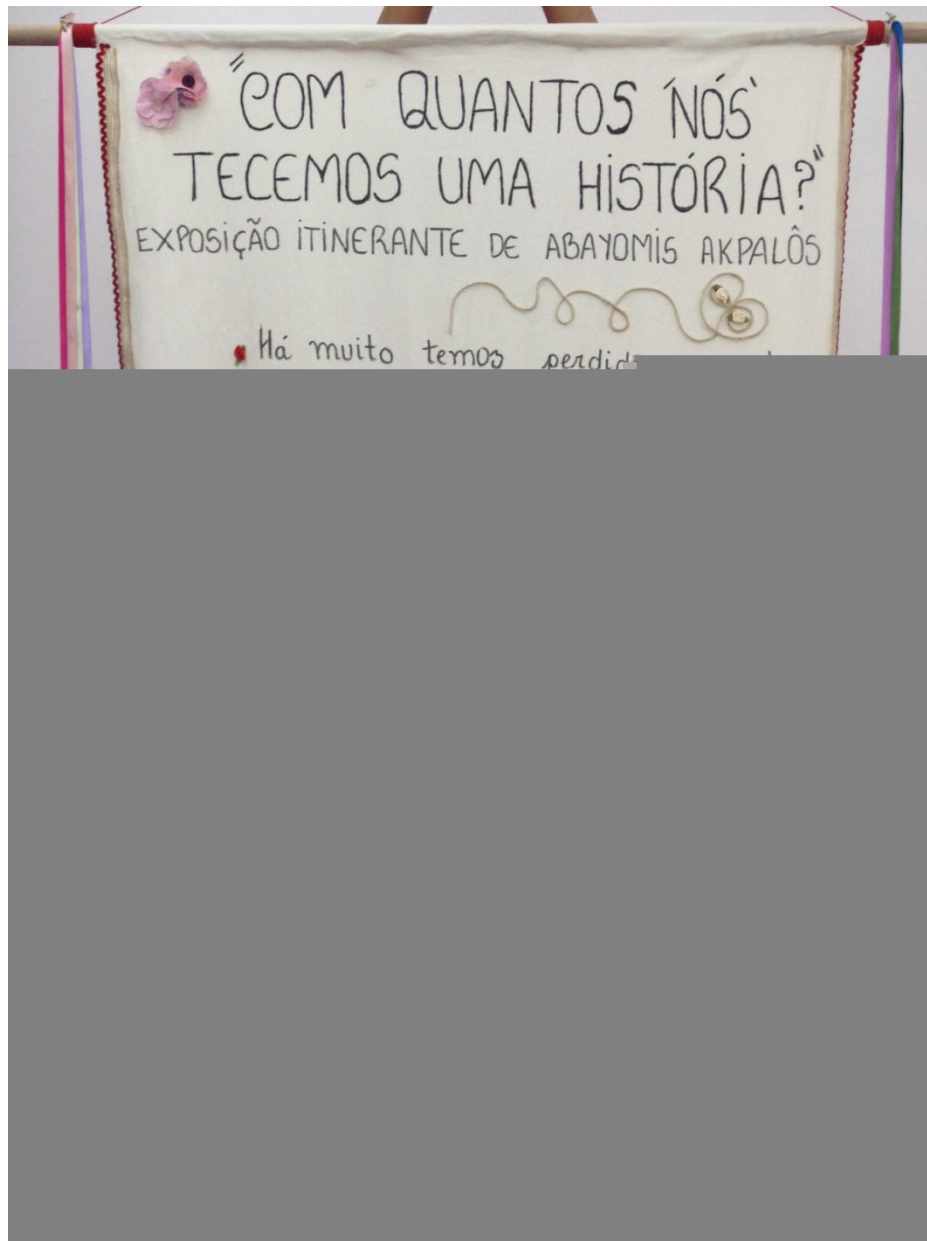 "COM QUANTOS 'NÓS'
TECEMOS UMA HISTÓRIA?"
EXPOSIÇÃO ITINERANTE DE ABAYOMIS AKPALÔS
Há muito temos